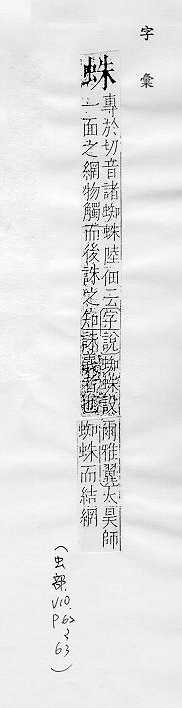 字彙
蛛
專於切音諸蜘蛛陸佃云字說蜘蛛設
一面之網物觸而後誅之知誅義者也
爾雅翼太昊師
蜘蛛而結網
(虫部. V10. P.62 63)